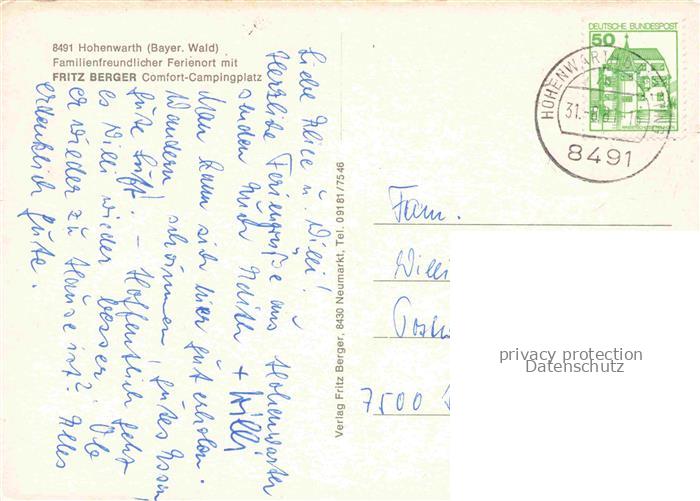 8491 Hohenwarth (Bayer. Wald)
Familienfreundlicher Ferienort mit
FRITZ BERGER Comfort-Campingplatz
Liebe Alice u. Willi!
Herzliche Feriengrüße aus Hohenwarth
senden Euch Edith + Willi
Man kann sich hier gut erholen.
Wandern, schwimmen, gutes Essen,
gute Luft! - Hoffentlich geht
es Willi wieder besser. Ob
er wieder zu Hause ist? Alles
erdenklich Gute.
Verlag Fritz Berger, 8430 Neumarkt, Tel. 09181/7546
DEUTSCHE BUNDESPOST
50
HOHENWARTH
31.
8491
Fam.
Willi
7500
privacy protection
Datenschutz